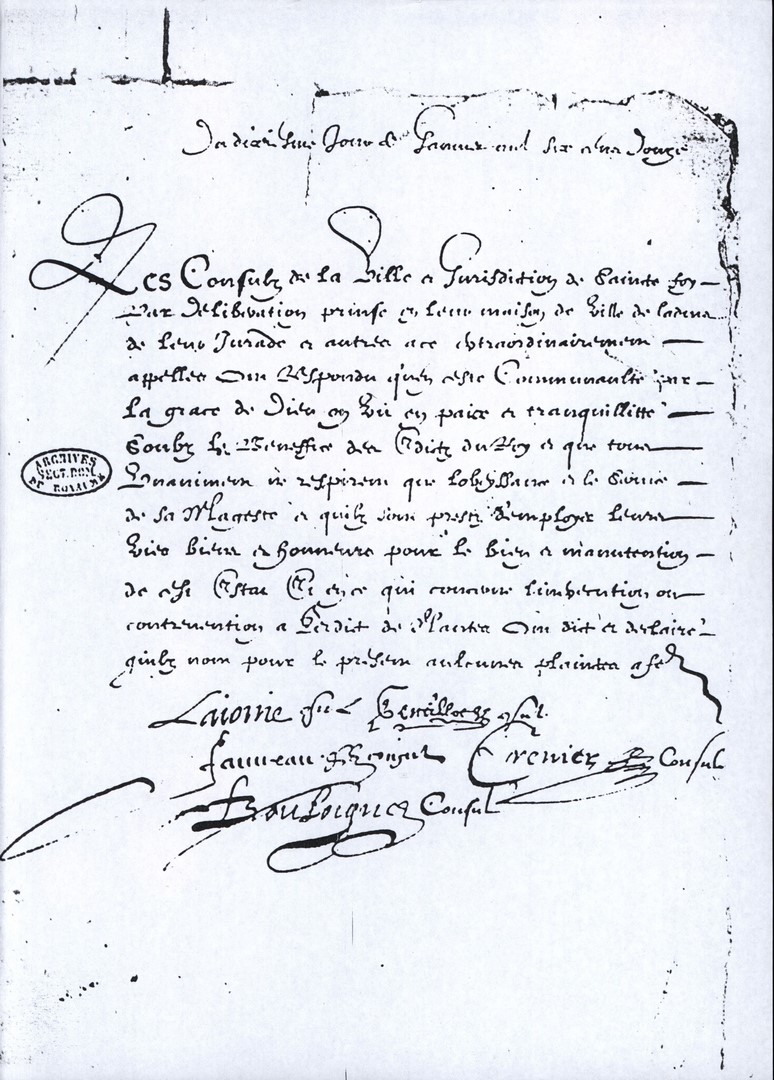 Du dixiesme Jour de Janvier mil six cens douze
Les Consulz de la Ville et Jurisdiction de Saincte foy
Par deliberation prinse en leur maison de Ville de ladvis
de leur Jurade et autres a ce extraordinairement
appelles Ont Respondu qu'en ceste Communaulté par
la grace de Dieu on vit en paix et tranquillitté
Soubz le Beneffice des Editz du Roy et que tous
Unanimem ne respirent que lobeyssance et le Service
de sa Magesté et quilz sont prestz d'employer leurs
vies biens et honneurs pour le bien et manutention
de cest Estat Et en ce qui concerne l'inexecution ou
contrevention a l'Edict de Nantes Ont dit et declairé
quilz nont pour le present aulcunes plaintes a fe
ARCHIVES SECT. DOM. DU ROYAUME
consul consul
Consul
Consul